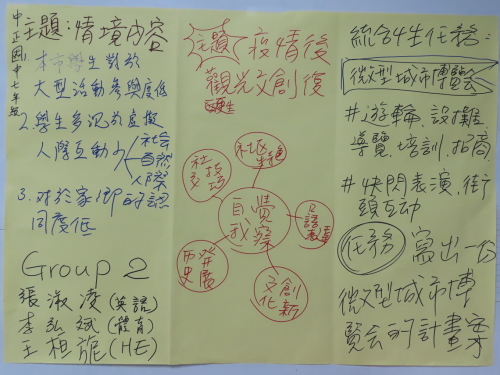 中正國中七年級
主題:情境內容
本市學生對於
大型活動參與度低
2.學生多沉於虛擬
人際互動少
社會
自然
人際
3.對於家鄉的認
同度低
Group 2
張淑凌(英語)
李弘斌(體育)
王桓旎(HE)
主題 疫情後
觀光文創復
社區特色
社交技巧
自我覺察
歷史發展
文化創新
綜合性任務:
微型城市博覽会
#遊輪、設攤
導覽、培訓、招商
#快閃表演、街
頭互动
任務 寫出一份
微型城市博
覽会的計畫案